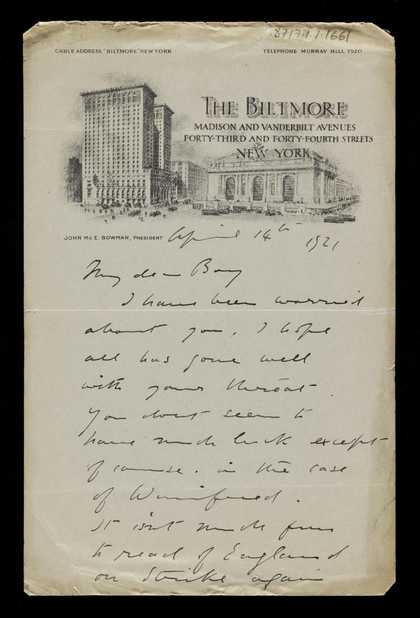 CABLE ADDRESS "BILTMORE" NEW YORK
TELEPHONE MURRAY HILL 7920
THE BILTMORE
MADISON AND VANDERBILT AVENUES
FORTY-THIRD AND FORTY-FOURTH STREETS
NEW YORK
JOHN MC E. BOWMAN, PRESIDENT
April 14th 1921
My dear Boy
I have been worried
about you. I hope
all has gone well
with your throat.
You dont seem to
have much luck except
of course. in the case
of Winifred.
It isnt much fun
to read of England
on strike again